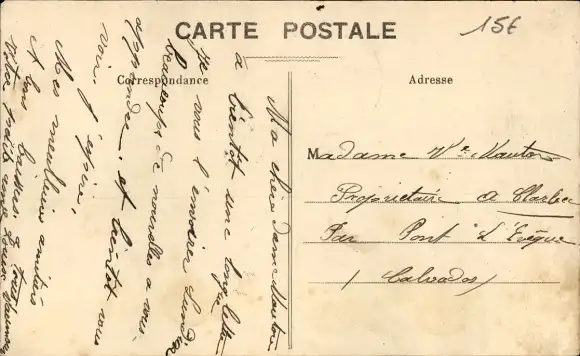 CARTE POSTALE
15€
Correspondance
Adresse
Ma chère dame
à bientôt une longue lettre
je vous l'enverrai Lundi
beaucoup de nouvelles a vous
apprendre, et bientôt vous
voir j'espère,
Mes meilleures amitiés
A tous
Votre petite amie
Madame Vve
Propriétaire a Clarbec
Par Pont L'Evêque
(Calvados)